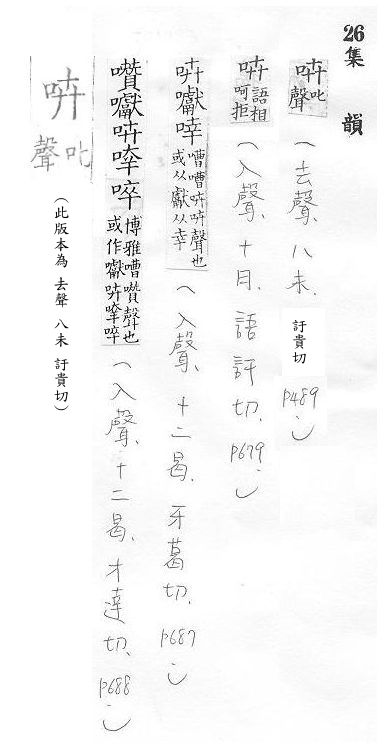 26集 韻
㕲 叱聲 (去聲、八未、訏貴切 P489。)
㕲 語相呵拒 (入聲、十月、語訐切、P679。)
㕲𡅼㖕 嘈嘈㕲㕲聲也或从獻从幸 (入聲、十二曷、牙葛切、P687。)
囋𡅼㕲 啐 博雅嘈囋聲也或作𡅼㕲 啐 (入聲、十二曷、才達切、P688。)
㕲 叱聲 (此版本為 去聲 八未 訏貴切)